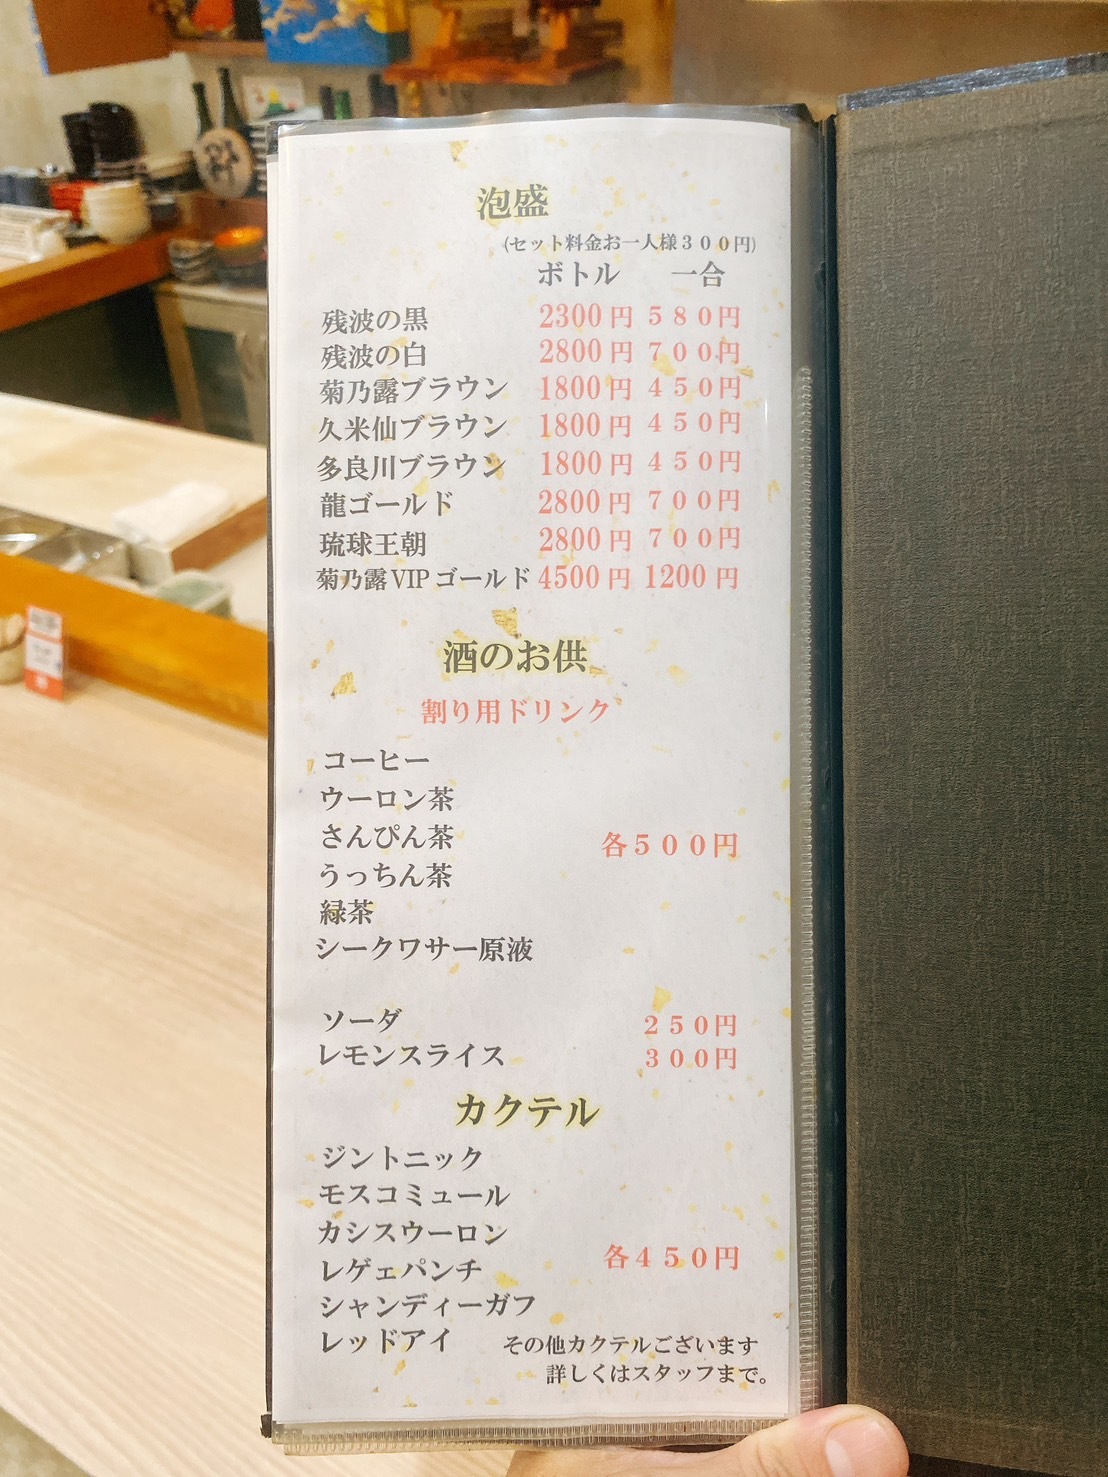 泡盛
(セット料金お一人様３００円)
ボトル 一合
残波の黒 2300円 ５８０円
残波の白 2800円 ７００円
菊乃露ブラウン 1800円 ４５０円
久米仙ブラウン 1800円 ４５０円
多良川ブラウン 1800円 ４５０円
龍ゴールド 2800円 ７００円
琉球王朝 2800円 ７００円
菊乃露VIPゴールド 4500円 1200円
酒のお供
割り用ドリンク
コーヒー
ウーロン茶
さんぴん茶 各５００円
うっちん茶
緑茶
シークワサー原液
ソーダ ２５０円
レモンスライス ３００円
カクテル
ジントニック
モスコミュール
カシスウーロン
各４５０円
レゲェパンチ
シャンディーガフ
レッドアイ その他カクテルございます
詳しくはスタッフまで。